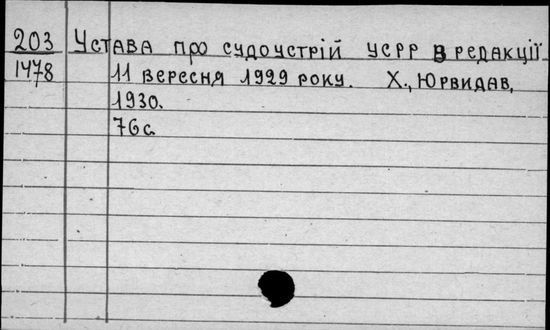 203 Устава про судоустрій УСРР в редакції
1478 11 вересня 1929 року. Х., Юрвидав,
1930.
76 с.